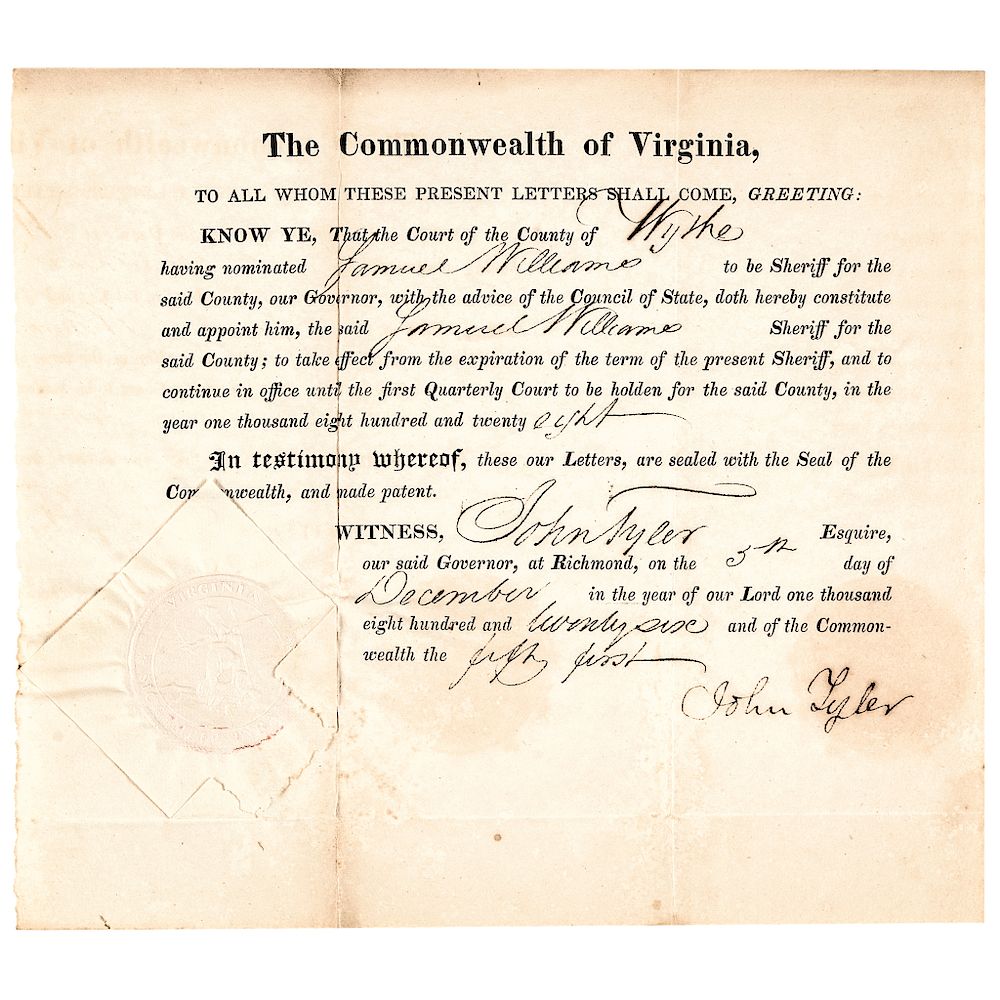 The Commonwealth of Virginia,
TO ALL WHOM THESE PRESENT LETTERS SHALL COME, GREETING:
KNOW YE, That the Court of the County of Wythe
having nominated Samuel Williams to be Sheriff for the
said County, our Governor, with the advice of the Council of State, doth hereby constitute
and appoint him, the said Samuel Williams Sheriff for the
said County; to take effect from the expiration of the term of the present Sheriff, and to
continue in office until the first Quarterly Court to be holden for the said County, in the
year one thousand eight hundred and twenty eight
In testimony whereof, these our Letters, are sealed with the Seal of the
Com nwealth, and made patent.
WITNESS, John Tyler Esquire,
our said Governor, at Richmond, on the 5th day of
December in the year of our Lord one thousand
eight hundred and twenty six and of the Common-
wealth the fifty first
John Tyler
VIRGINIA